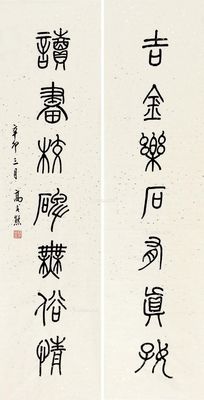 吉金樂石有真好
讀書校碑無俗情
辛卯三月 高式熊